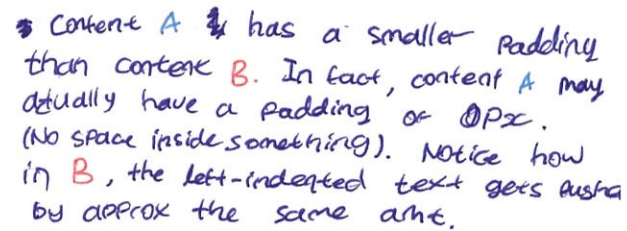 Content A has a smaller padding
than content B. In fact, content A may
actually have a padding of 0px.
(No space inside something). Notice how
in B, the left-indented text gets pushe
by approx the same amt.